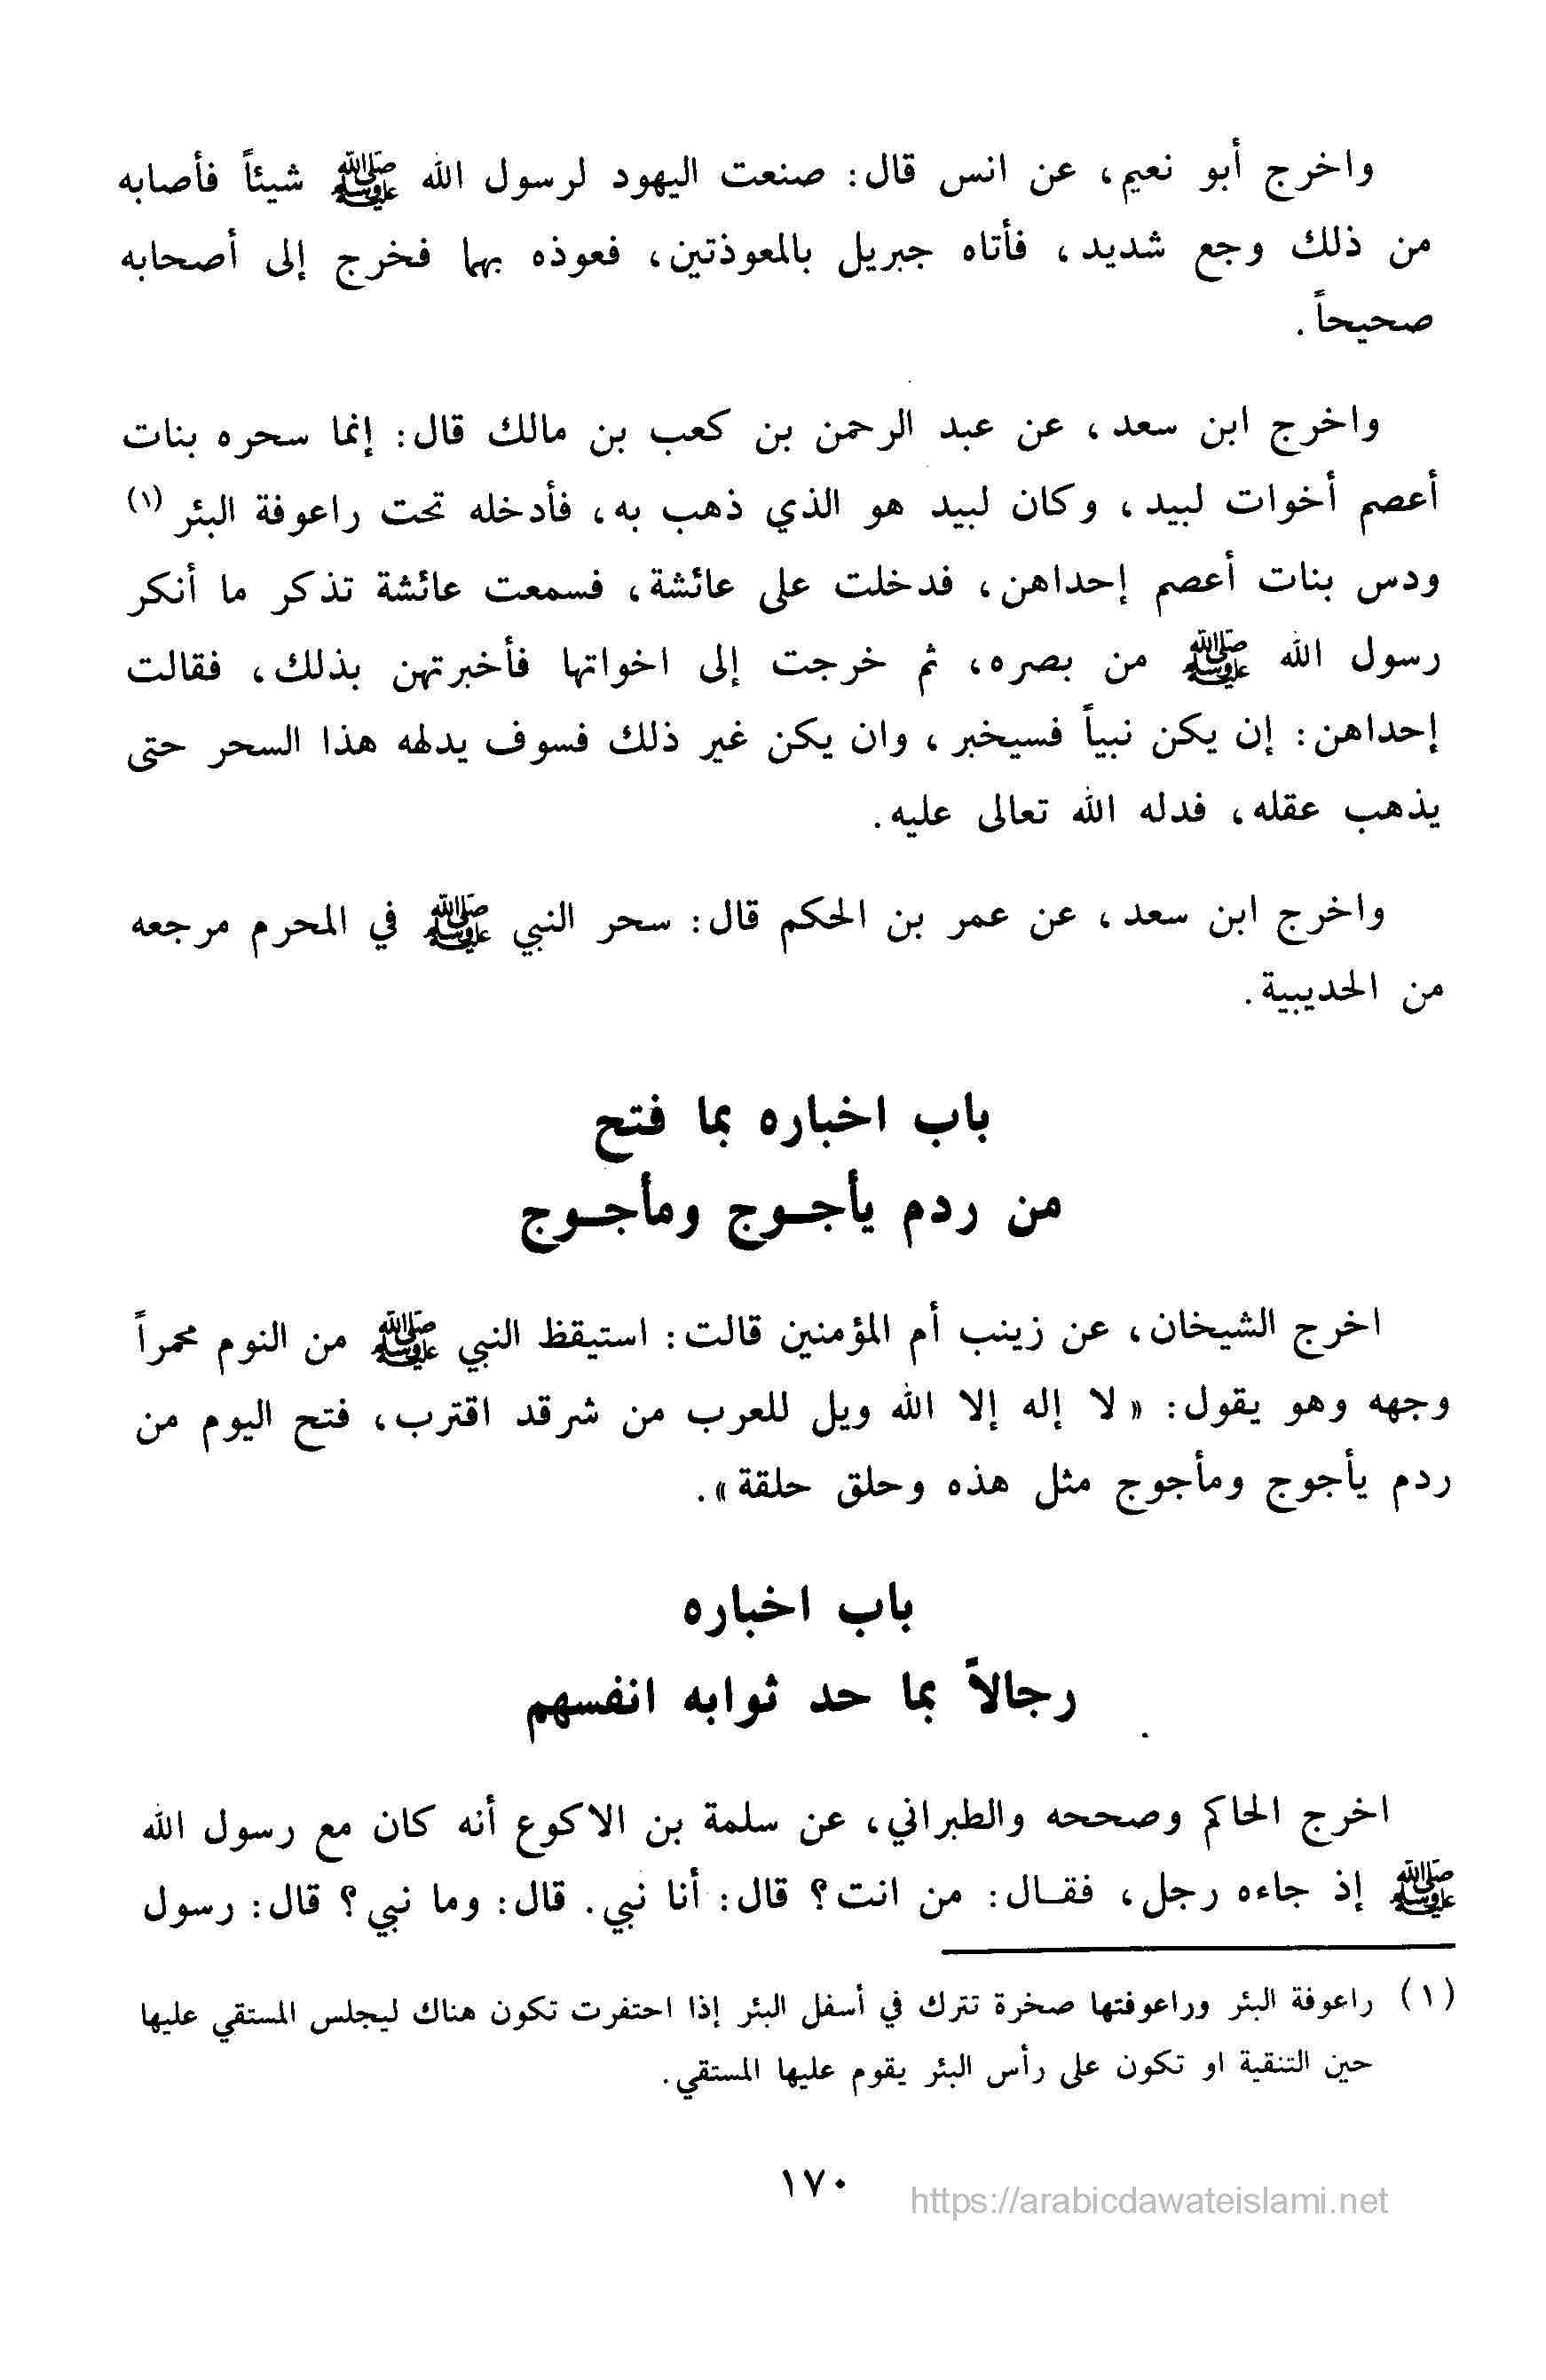 واخرج أبو نعيم، عن انس قال: صنعت اليهود لرسول الله ﷺ شيئاً فأصابه
من ذلك وجع شديد، فأتاه جبريل بالمعوذتين، فعوذه بهما فخرج إلى أصحابه
صحيحاً.
واخرج ابن سعد، عن عبد الرحمن بن كعب بن مالك قال: إنما سحره بنات
أعصم أخوات لبيد، وكان لبيد هو الذي ذهب به، فأدخله تحت راعوفة البئر (١)
ودس بنات أعصم إحداهن، فدخلت على عائشة، فسمعت عائشة تذكر ما أنكر
رسول الله ﷺ من بصره، ثم خرجت إلى اخواتها فأخبرتهن بذلك، فقالت
إحداهن: إن يكن نبياً فسيخبر، وان يكن غير ذلك فسوف يدلهه هذا السحر حتى
يذهب عقله، فدله الله تعالى عليه.
واخرج ابن سعد، عن عمر بن الحكم قال: سحر النبي ﷺ في المحرم مرجعه
من الحديبية.
باب اخباره بما فتح
من ردم يأجـوج ومأجـوج
اخرج الشيخان، عن زينب أم المؤمنين قالت: استيقظ النبي ﷺ من النوم محمراً
وجهه وهو يقول: «لا إله إلا الله ويل للعرب من شرقد اقترب، فتح اليوم من
ردم يأجوج ومأجوج مثل هذه وحلق حلقة».
باب اخباره
رجالاً بما حد ثوابه انفسهم
اخرج الحاكم وصححه والطبراني، عن سلمة بن الاكوع أنه كان مع رسول الله
ﷺ إذ جاءه رجل، فقـال: من انت؟ قال: أنا نبي. قال: وما نبي؟ قال: رسول
(١) راعوفة البئر وراعوفتها صخرة تترك في أسفل البئر إذا احتفرت تكون هناك ليجلس المستقي عليها
حين التنقية او تكون على رأس البئر يقوم عليها المستقي.
١٧٠
https://arabicdawateislami.net